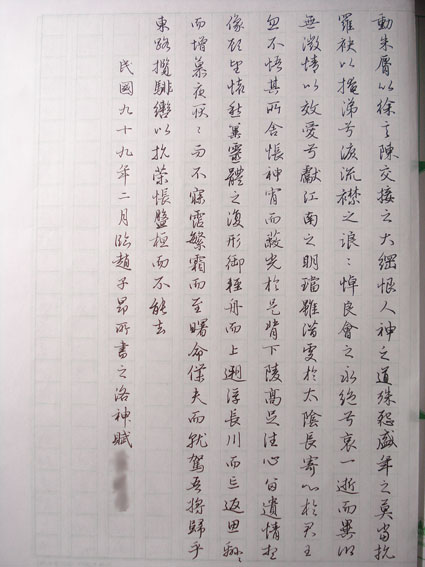 動朱脣以徐言陳交接之大綱恨人神之道殊怨盛年之莫當抗
羅袂以掩涕兮淚流襟之浪〻悼良會之永絕兮哀一逝而異鄉
無微情以效愛兮獻江南之明璫雖潛處於太陰長寄心於君王
忽不悟其所舍悵神宵而蔽光於是背下陵高足往心留遺情想
像顧望懷愁冀靈體之復形御輕舟而上遡浮長川而忘返思緜〻
而增慕夜耿〻而不寐霑繁霜而至曙命僕夫而就駕吾將歸乎
東路攬騑轡以抗策悵盤桓而不能去
民國九十九年二月臨趙子昂所書之洛神賦